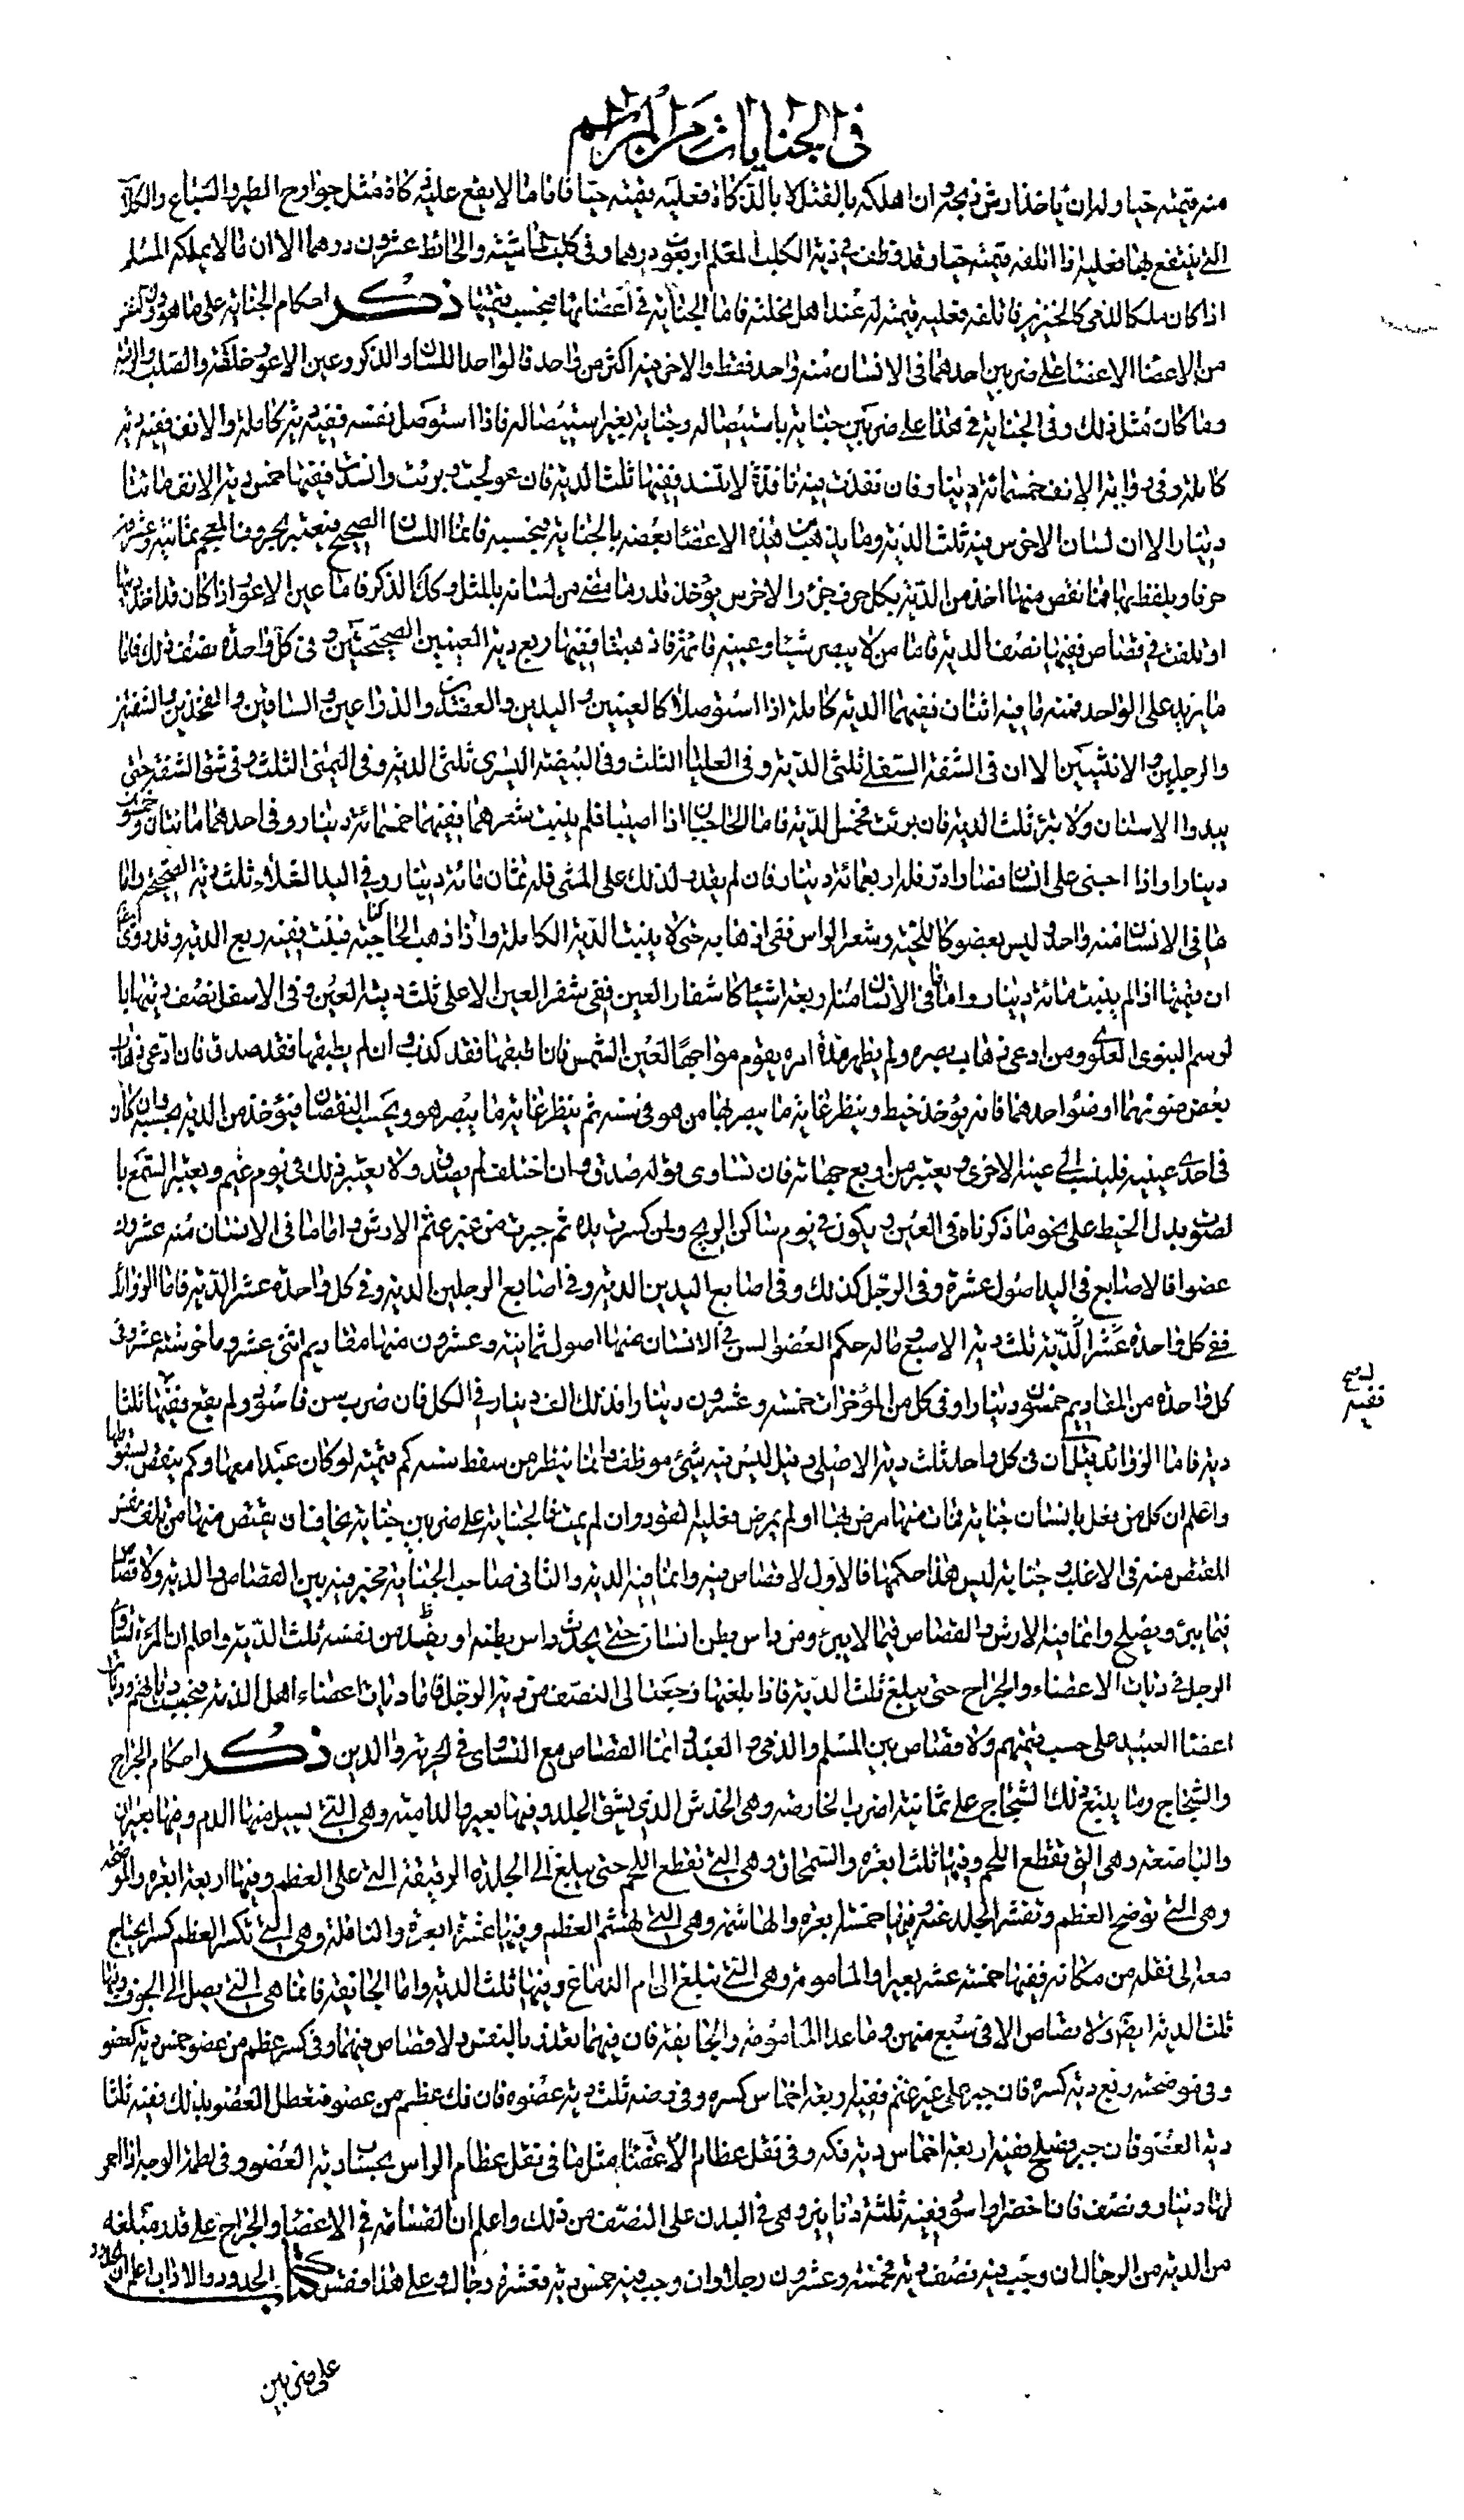 في الجنايات من المراسم
منه قيمته حيا وله ان ياخذ ارش ذبحه وان اهلكه بالقتل لا بالذكاة فعليه قيمته حيا فاما ما لا يقع عليه ذكاة مثل جوارح الطير والسباع والكلاب
التي ينتفع بها فعليه اذا اتلفه قيمته حيا وقد وظف في دية الكلب المعلم اربعون درهما وفي كلب الماشية والحائط عشرون درهما الا ان ما لا يملكه المسلم
اذا كان ملكا لذمي كالخنزير فاتلفه فعليه قيمته له عند اهل نحلته فاما الجناية في اعضائها فبحسب قيمتها ذكر احكام الجناية على ما هو دون النفس
من الاعضا الاعضا على ضربين احدهما في الانسان منه واحد فقط والاخر فيه اكثر من واحد فالواحد اللسان والذكر وعين الاعور خلقة والصلب والانف
وما كان مثل ذلك وفي الجناية في هذا على ضربين جناية باستيصاله وجناية بغير استيصاله فاذا استوصل نفسه ففيه دية كاملة والانف ففيه دية
كاملة وفي روثة الانف خمسمائة دينار فان نفذت فيه نافذة لا تنسد ففيها ثلث الدية فان عولجت وبرئت وانسدت ففيها خمس دية الانف مائتا
دينار الا ان لسان الاخرس فيه ثلث الدية وما يذهب من هذه الاعضا بعضه بالجناية فبحسبه فاما اللسان الصحيح فيعتبر بحروف المعجم ثمانية وعشرين
حرفا ويلفظ بها فما نقص منها اخذ من الدية بكل حرف جزء والاخرس يؤخذ قدر ما مضى من لسانه بالمثل وكذا الذكر فاما عين الاعور اذا كان قد اخذ ديتها
او تلفت في قصاص ففيها نصف الدية فاما من لا يبصر شيئا وعينه قائمة فاذهبتا ففيها ربع دية العينين الصحيحتين وفي كل واحدة نصف ذلك فاما
ما يزيد على الواحد فمنه ما فيه اثنتان ففيهما الدية كاملة اذا استوصلا كالعينين واليدين والعضدين والذراعين والساقين والفخذين والشفتين
والرجلين والانثيين الا ان في الشفة السفلى ثلثي الدية وفي العليا الثلث وفي البيضة اليسرى ثلثي الدية وفي اليمنى الثلث وفي شق الشفة حتى
يبدوا الاسنان ولا يبرء ثلث الدية فان برئت فخمس الدية فاما الحاجبان اذا اصيبا فلم ينبت شعرهما ففيهما خمسمائة دينار وفي احدهما مائتان وخمسون
دينارا واذا جنى على انسان فصار ادر فله اربعمائة دينار فان لم يقدر لذلك على المشي فله ثمان مائة دينار وفي اليد الشلاء ثلث دية الصحيحة واما
ما في الانسان منه واحد وليس بعضو كاللحية وشعر الراس ففي اذهابه حتى لا ينبت الدية الكاملة واذا ذهب الحاجبه فنبت ففيه ربع الدية وقد روي
ان فيها اذا لم ينبت مائة دينار واما ما في الانسان منه اربعة اشيا كاشفار العين ففي شفر العين الاعلى ثلث دية العين وفي الاسفل نصف ديتها با
لرسم النبوي العلوي ومن ادعى ذهاب بصره ولم يظهر هذا امره يقوم مواجها لعين الشمس فان اطبقها فقد كذب وان لم يطبقها فقد صدق فان ادعى ذهاب
بعض ضوئهما او ضوء احدهما فانه يؤخذ خيط وينظر غاية ما يبصر بها من هو في سنه ثم ينظر غاية ما يبصر هو ويحسب النقصان فيؤخذ من الدية بحسبه وان كان
في احدى عينيه فلينسب الى عينه الاخرى ويعتبر من اربع جهات فان تساوى قوله صدق وان اختلف لم يصدق ولا يعتبر ذلك في يوم غيم ويعتبر السمع با
لصوت بدل الخيط على نحو ما ذكرناه في العين ويكون في يوم ساكن الريح ولمن كسرت يده ثم جبرت من غير عثم الارش واما ما في الانسان منه عشرون
عضوا فالاصابع في اليد اصول عشرة وفي الرجل كذلك وفي اصابع اليدين الدية وفي اصابع الرجلين الدية وفي كل واحدة عشر الدية فاما الزوائد
ففي كل واحدة عشر الدية ثلث دية الاصبع ما له حكم العضو السن في الانسان منها اصول ثمانية وعشرون منها مقاديم اثنى عشر وماخر ستة عشر وفي
كل واحدة من المقاديم خمسون دينارا وفي كل من المؤخرات خمسة وعشرون دينارا فذلك الف دينار في الكل فان ضرب سن فاسود ولم يقع ففيها ثلثا
دية فاما الزوائد فقيل ان في كل واحد ثلث دية الاصلي وقيل ليس فيه شئ موظف وانما ينظر من سقط سنه كم قيمته لو كان عبدا معها وكم ينقص بسقوطها
واعلم ان كل من فعل بانسان جناية فمات منها مرض بها او لم يمرض فعليه القود وان لم يمت فالجناية على ضربين جناية يخاف ان يقتص منها من تلف نفس
المقتص منه في الاغلب وجناية ليس هذا حكمها فالاول لا قصاص فيه وانما فيه الدية والثاني صاحب الجناية مخير فيه بين القصاص والدية ولا قصاص
فيما يبرء ويصلح وانما فيه الارش والقصاص فيما لا يبرء ومن داس بطن انسان حتى يحدث داس بطنه او يفتد من نفسه ثلث الدية واعلم ان المرءة تساوى
الرجل في ديات الاعضاء والجراح حتى يبلغ ثلث الدية فاذا بلغتها رجعت الى النصف من دية الرجل فاما ديات اعضاء اهل الذمة فبحسب دياتهم وديات
اعضا العبيد على حسب قيمتهم ولا قصاص بين المسلم والذمي والعبد وانما القصاص مع التساوى في الحرية والدين ذكر احكام الجراح
والشجاج وما يتبع ذلك الشجاج على ثمانية اضرب الخارصة وهي الخدش الذي يشق الجلد وفيها بعير والدامية وهي التي يسيل منها الدم وفيها بعيران
والباضعة وهي التي تقطع اللحم وفيها ثلث ابعرة والسمحاق وهي التي تقطع اللحم حتى يبلغ الى الجلدة الرقيقة التي على العظم وفيها اربعة ابعرة والموضحة
وهي التي توضح العظم وتقشر الجلد عنه وفيها خمسة ابعرة والهاشمة وهي التي تهشم العظم وفيها عشرة ابعرة والناقلة وهي التي تكسر العظم كسرا يحتاج
معه الى نقله من مكانه ففيها خمسة عشر بعيرا والمامومة وهي التي تبلغ الى ام الدماغ وفيها ثلث الدية واما الجائفة فانما هي التي يصل الى الجوف وفيها
ثلث الدية ايضا ولا قصاص الا في سبع منهن وما عدا المامومة والجائفة فان فيهما تغذر بالنفس ولا قصاص فيهما وفي كسر عظم من عضو خمس دية العضو
وفي موضحته ربع دية كسره فان جبر على غير عثم ففيه اربعة اخماس كسره وفي رضه ثلث دية عضوه فان فك عظم من عضو فتعطل العضو بذلك ففيه ثلثا
دية العضو فان جبر وصلح ففيه اربعة اخماس دية فكه وفي نقل عظام الاعضا مثل ما في نقل عظام الراس بحساب دية العضو وفي لطمة الوجه اذا احمر
لها دينار ونصف فان اخضر او اسود ففيه ثلثة دنانير وهي في البدن على النصف من ذلك واعلم ان القسامة في الاعضا والجراح على قدر مبلغه
من الدية من الرجال ان وجب فيه نصف دية فخمسة وعشرون رجلا وان وجب فيه خمس دية فعشرة رجال وعلى هذا فقس كتاب الحدود والاداب اعلم ان الحدود
على ضربين